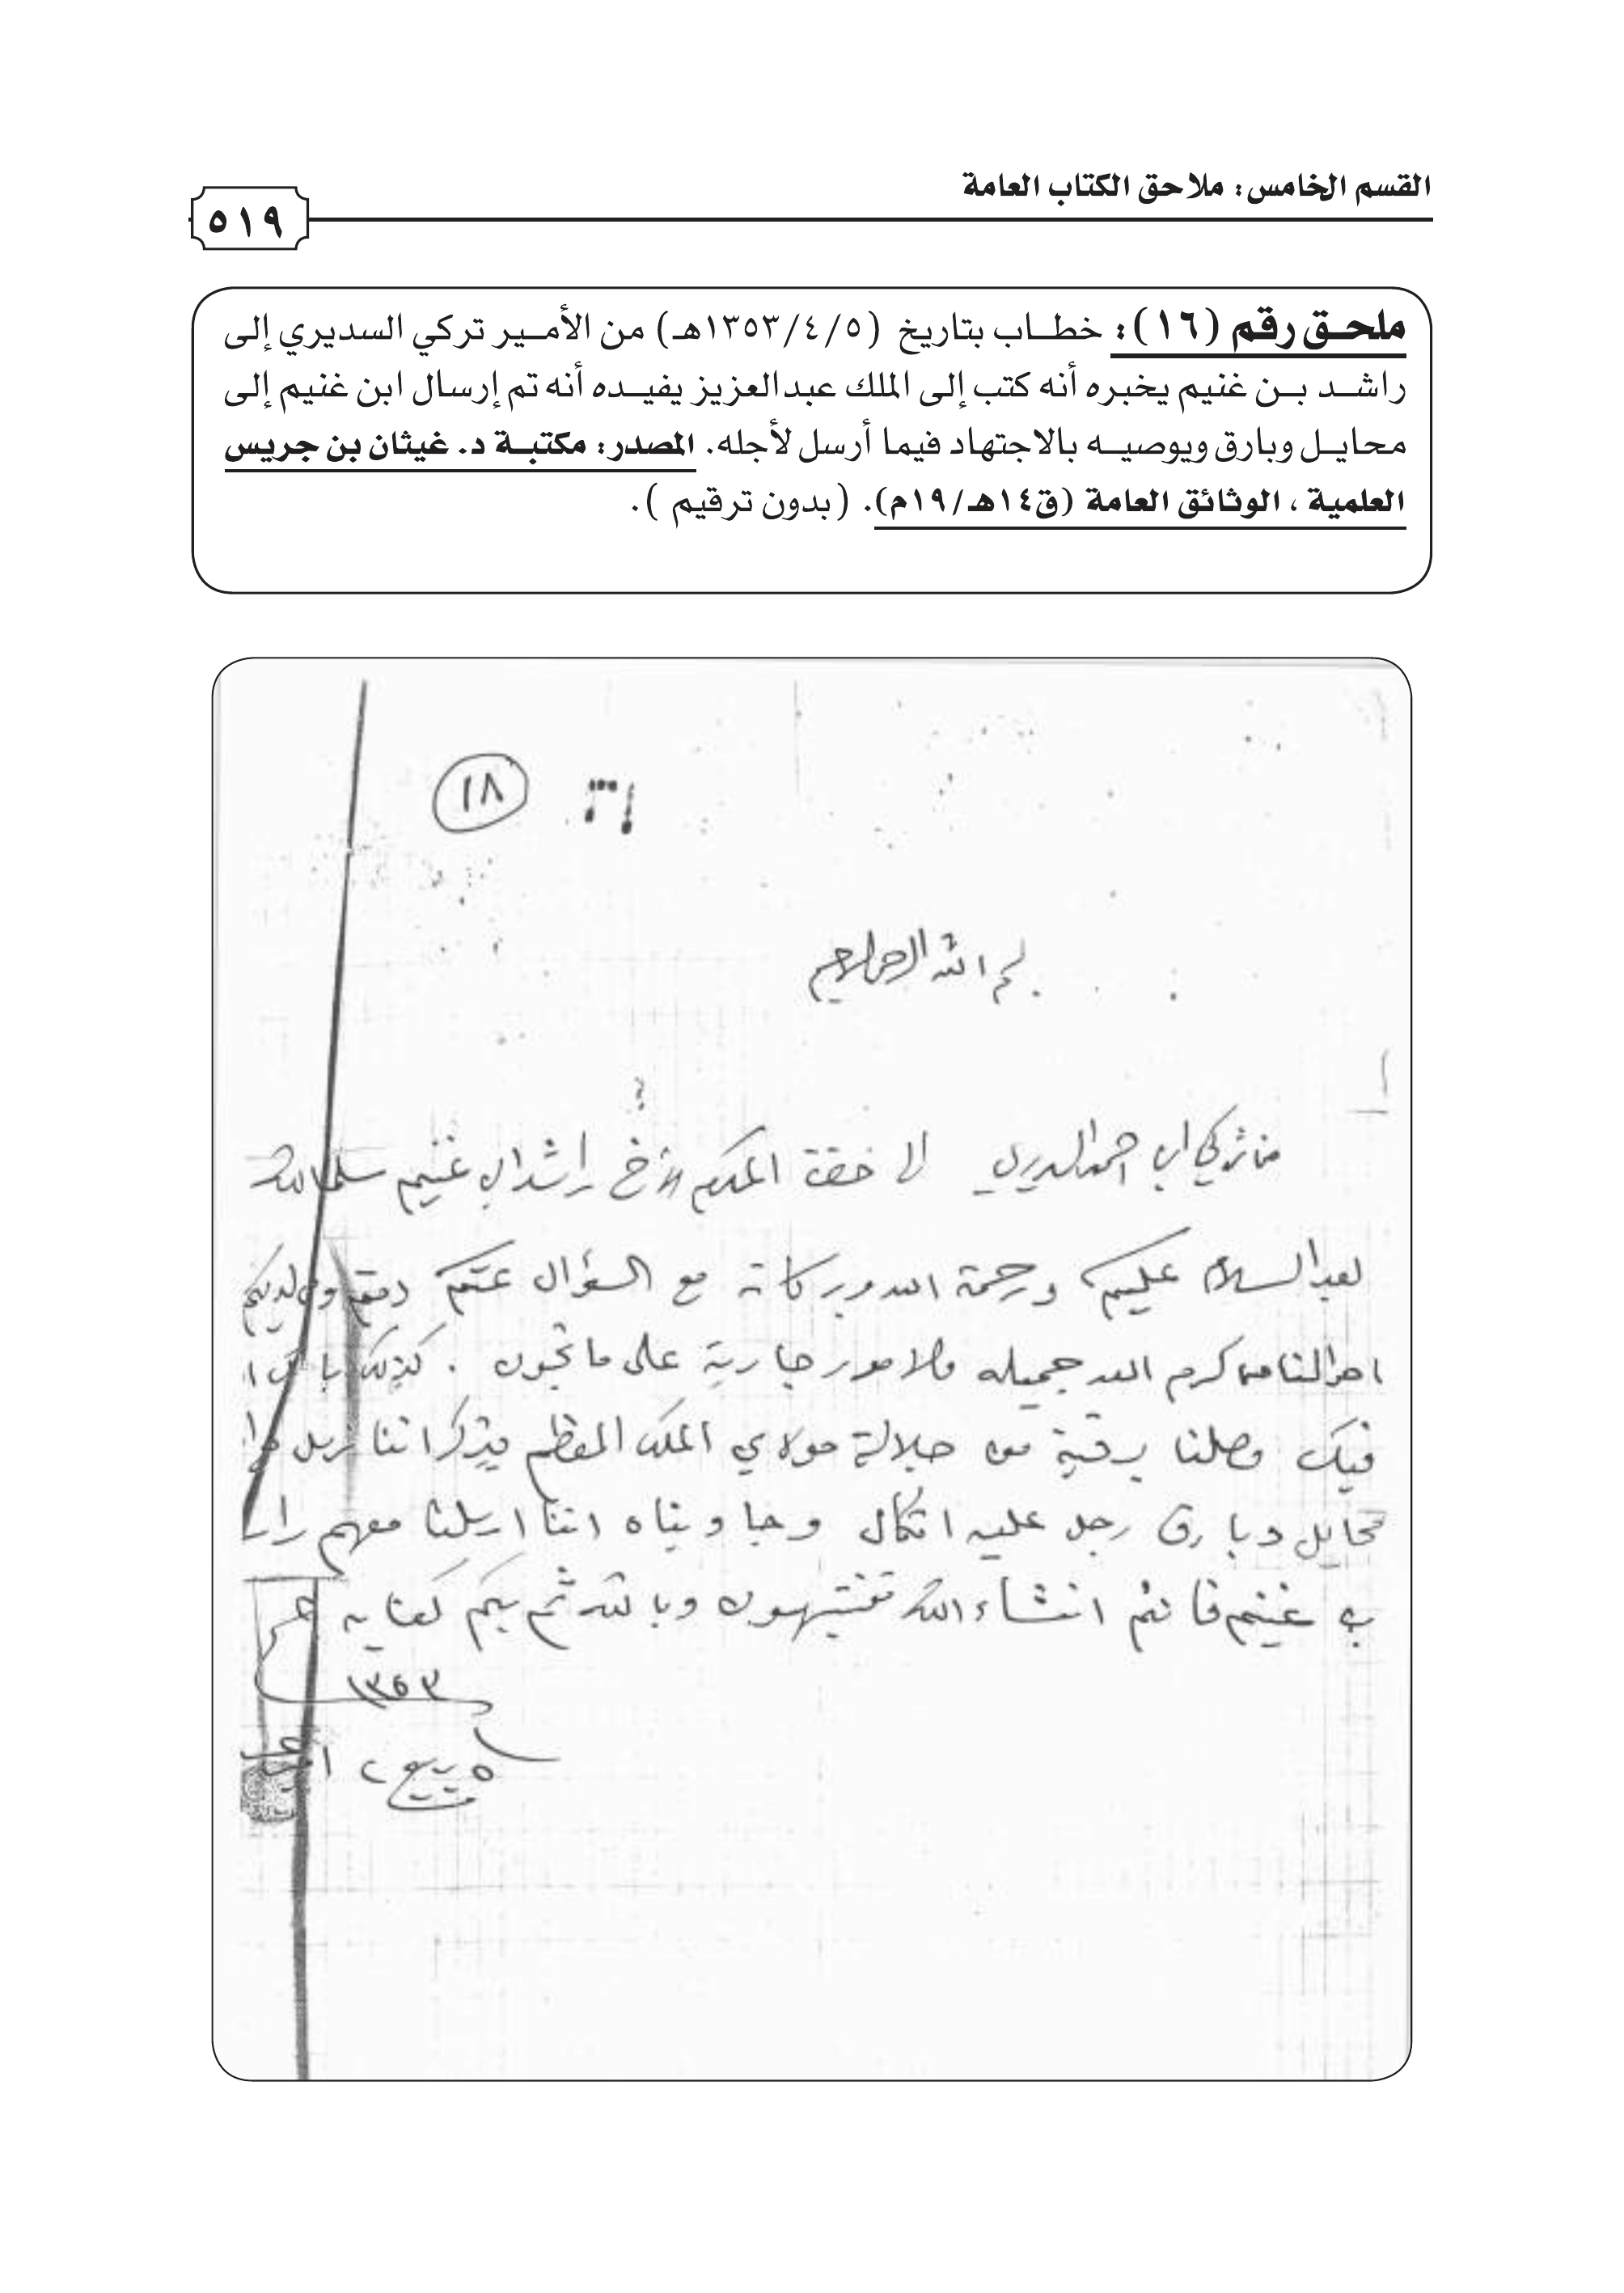 القسم الخامس: ملاحق الكتاب العامة
٥١٩
ملحـق رقم (١٦): خطــاب بتاريخ (١٣٥٣/٤/٥هـ) من الأمـير تركي السديري إلى
راشــد بــن غنيم يخبره أنه كتب إلى الملك عبدالعزيز يفيــده أنه تم إرسال ابن غنيم إلى
محايــل وبارق ويوصيــه بالاجتهاد فيما أرسل لأجله. المصدر: مكتبــة د. غيثان بن جريس
العلمية ، الوثائق العامة (ق١٤هـ/١٩م). (بدون ترقيم ).
١٨
بسم الله الرحمن الرحيم
من تركي ابن احمد السديري الى حضرة المكرم الأخ راشد ابن غنيم سلمه الله
بعد السلام عليكم ورحمة الله وبركاته مع السؤال عنكم
احوالنا من كرم الله جميله والامور جارية على ما تحبون . كذلك
فيك وصلنا برقية من جلالة مولاي الملك المعظم يذكر اننا نرسل
محايل وبارق رجل عليه اتكال وجاوبناه اننا ارسلنا معهم
بن غنيم فانتم انشاء الله وبالله ثم بكم كفايه
١٣٥٣
٥ ربيع ٢